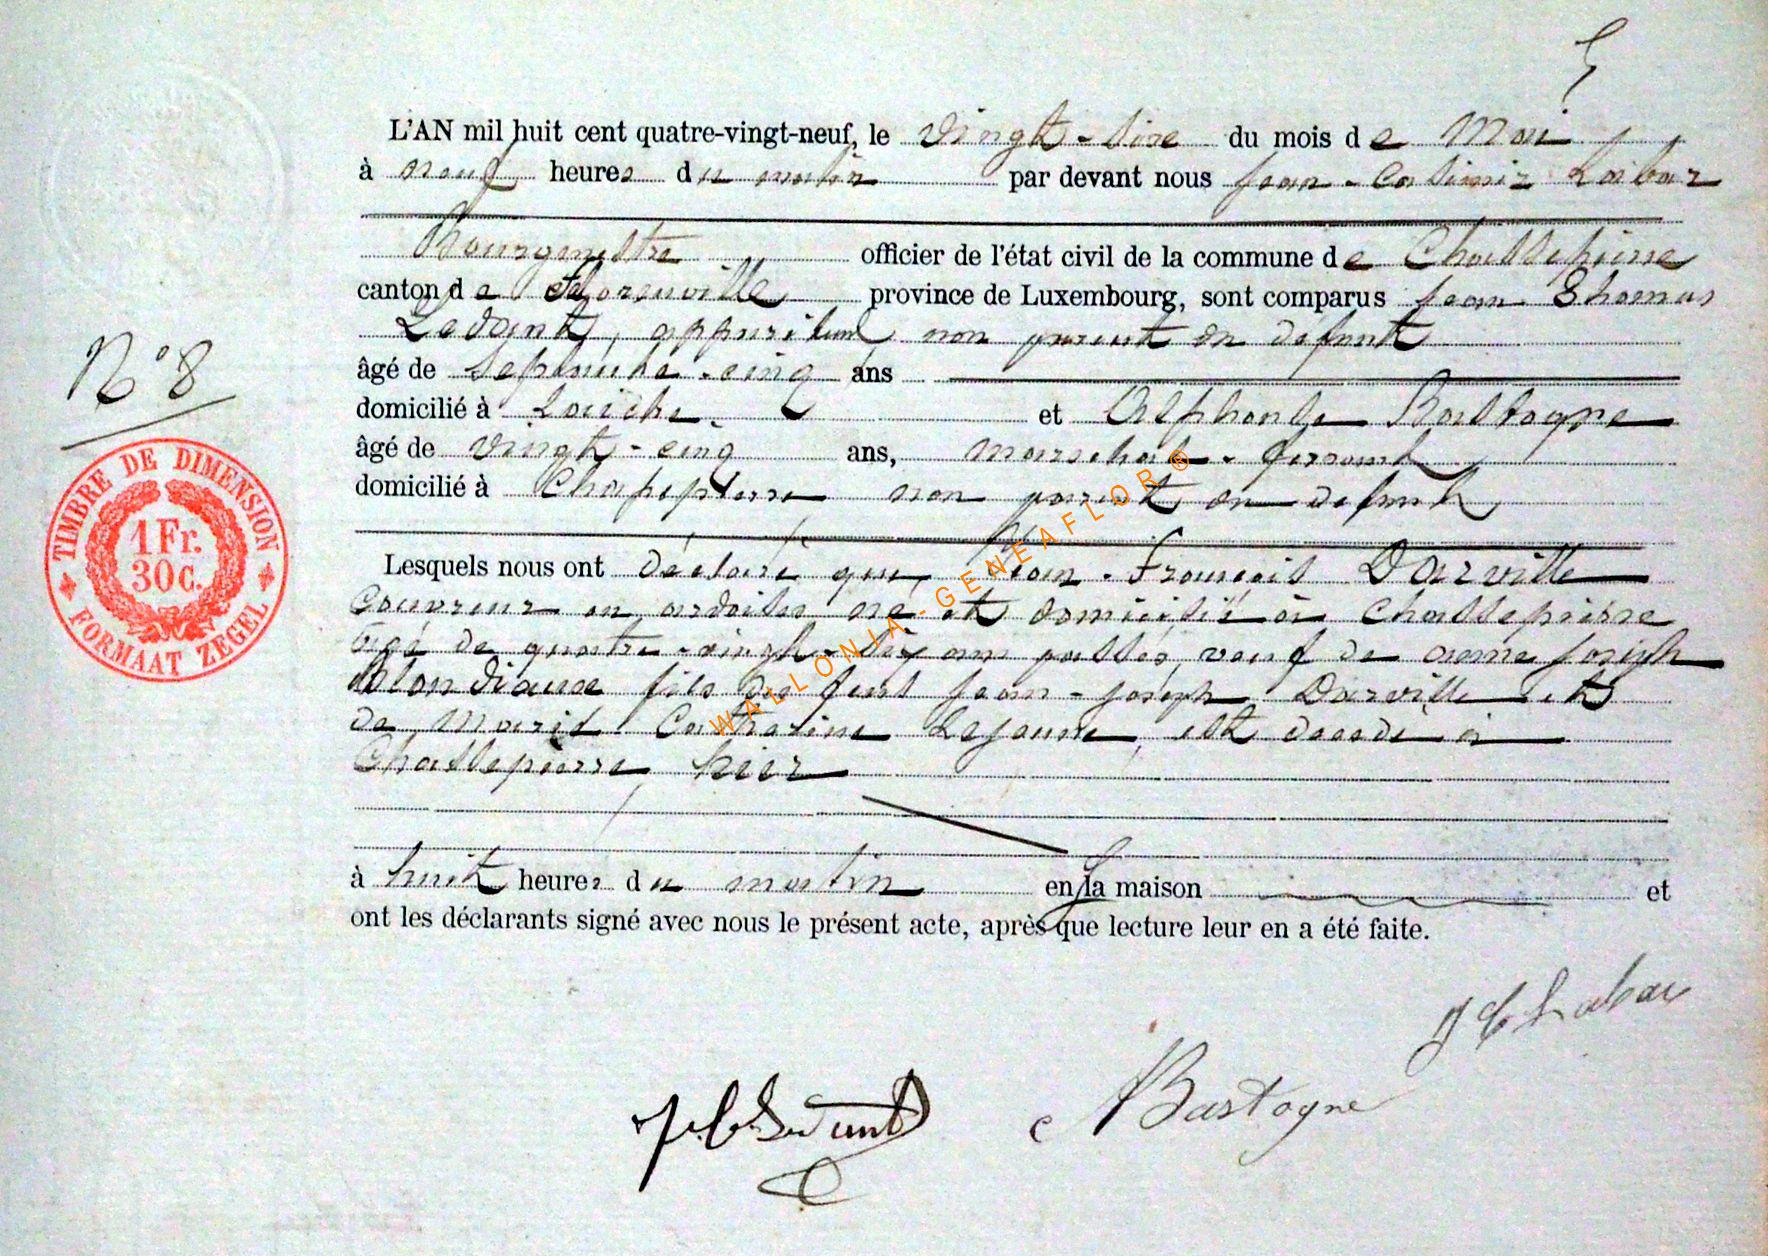 L'AN mil huit cent quatre-vingt-neuf, le vingt-sixe du mois de Mai
à neuf heures du matin par devant nous Jean-Casimir Labar
Bourgmestre officier de l'état civil de la commune de Chassepierre
canton de Florenville province de Luxembourg, sont comparus Jean Thomas
Ledant, non parent du defunt
âgé de septante-cinq ans
domicilié à Laiche et Alphonse Bastogne
N° 8
âgé de vingt-cinq ans, marechal-ferrant
domicilié à Chassepierre non parent du defunt
TIMBRE DE DIMENSION
1 Fr.
30 c.
FORMAAT ZEGEL
Lesquels nous ont déclaré que Jean-François Darville
couvreur en ardoises né et domicilié à Chassepierre
âgé de quatre-vingt-six ans passés, veuf de anne Joseph
fils de feus Jean-Joseph Darville et
de Marie Catherine Lejeune, est decedé à
Chassepierre hier
à huit heures du matin en la maison et
ont les déclarants signé avec nous le présent acte, après que lecture leur en a été faite.
J C Labar
Bastogne
Ledant
WALLONIA-GENEAFLOR ®